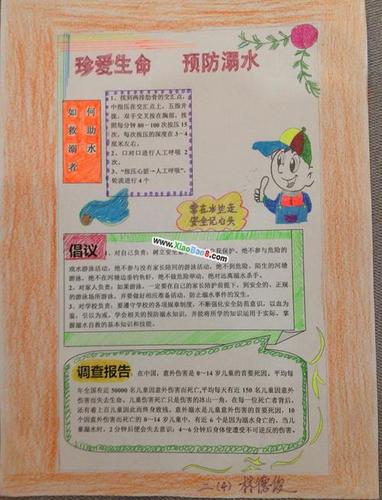 珍爱生命 预防溺水
如何救助溺水者
1、找到两排肋骨的交汇点，
中指压在交汇点上，五指并
拢，双手交叉按在胸部，按
照每分钟80－100次按压15
次，每次按压的深度在3－4
厘米左右。
2、口对口进行人工呼吸 2
次。
3、“按压心脏－人工呼吸”
轮流进行4个
常在水边走
安全记心头
www.XiaoBao8.com
倡议
1、对自己负责：树立安全
他不参与危险的
戏水游泳活动，他不参与没有家长陪同的游泳活动，他不到危险、陌生的河塘
游泳，他不在河塘边追逐的玩耍，他不做危险举动，他对远离溺水杀手。
2、对家人负责：如果游泳，一定要在自己的家长陪护前下，到安全的、正规
的游泳场所游泳，并要做好相应准备活动，防止溺水事件的发生。
3、对学校负责：要遵守学校的各项规章制度，不断强化安全防范意识，以血为
鉴，引以为戒，学会相关的预防溺水知识，并能将所学的知识运用于实际，掌
握溺水自救的基本知识和技能。
调查报告
在中国，意外伤害是 0－14岁儿童的首要死因，平均每
年全国有近 50000名儿童因意外伤害而死亡,平均每天有近 150 名儿童因意外
伤害而失去生命。儿童伤害死亡只是伤害的冰山一角，在每一位死亡者背后，
还有着上百儿童因此而终身致残，意外溺水是儿童意外伤害的首要死因，10
个因意外伤害而死亡的 0－14岁儿童中，有近 6 个是因为溺水身亡的，当儿
童溺水时，2 分钟后便会失去意识；4－6分钟后身体便遭受不可逆反的伤害。
二(4)